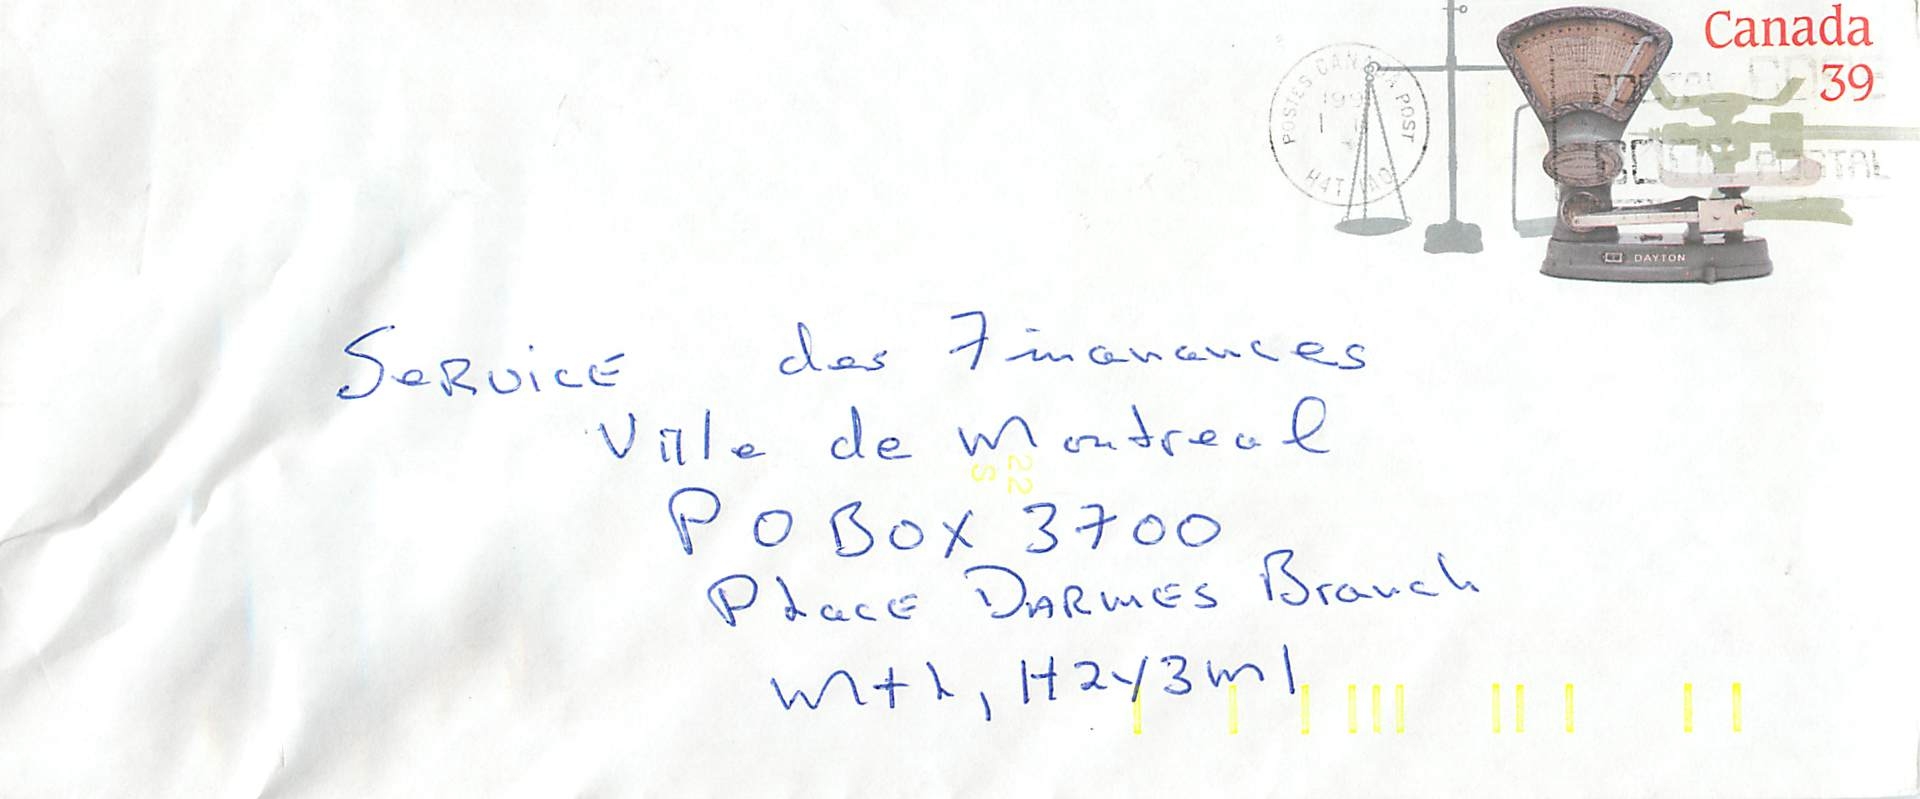 Canada
39
POSTES CANADA POST
H4T 1A0
POSTAL CODE
CODE POSTAL
DAYTON
SERVICE des Finanances
Ville de Montreal
22
S
PO BOX 3700
Place DARMES Branch
Mtl, H2Y3M1